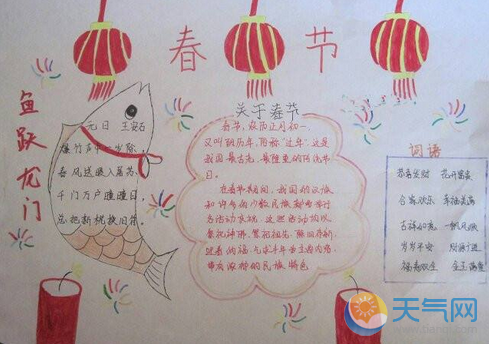 春节
鱼跃龙门
元日 王安石
爆竹声中一岁除,
春风送暖入屠苏,
千门万户曈曈日,
总把新桃换旧符。
关于春节
春节,农历正月初一
又叫阴历年,俗称“过年”,这是
我国最古老,最隆重的传统节
日。
在春节期间,我国的汉族
和许多少数民族都要举行
各活动庆祝,这些活动均以
祭祀神佛,祭祀祖先,除旧布新,
迎春纳福,气求丰年为主要内容,
带有浓郁的民族特色
词语
恭喜发财 花开富贵
合家欢乐 幸福美满
吉祥如意 一帆风顺
岁岁平安 财源广进
福寿双全 金玉满堂
天气网
www.tianqi.com